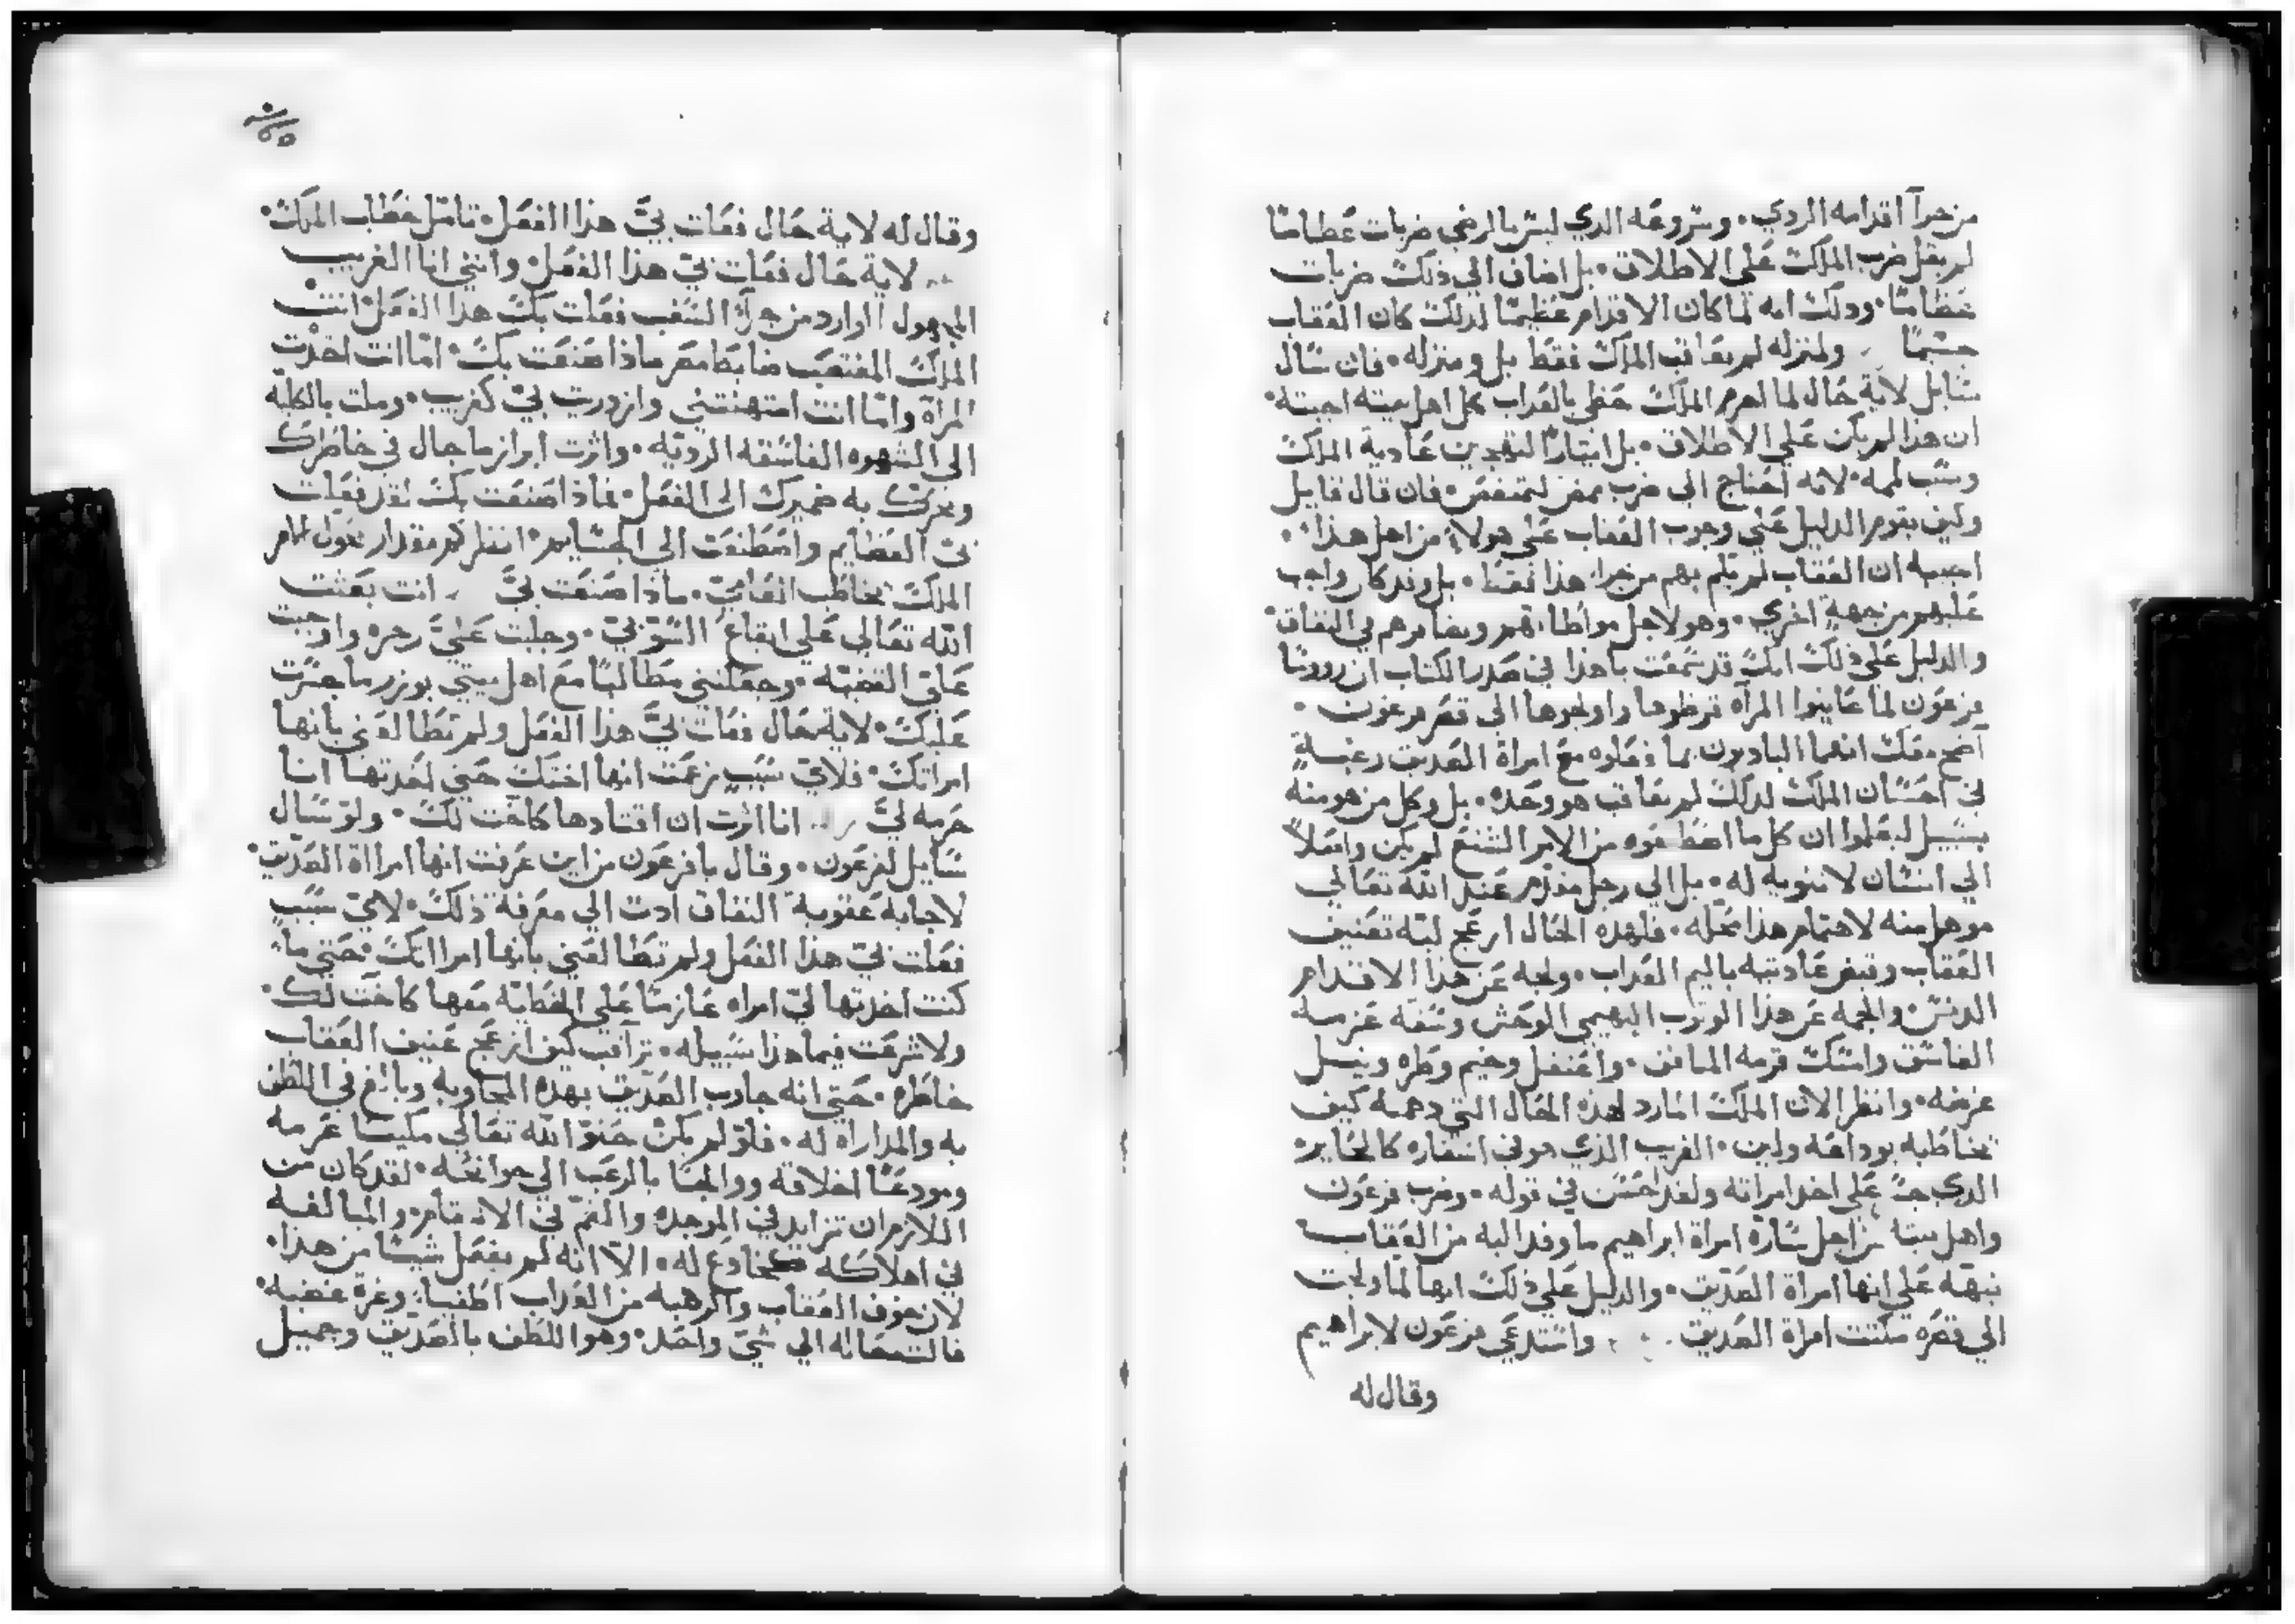 من جرآ اقدامه الردي. وشروعه الدي ليس بالرضي ضربات عظامًا
لم يقل ضرب الملك على الاطلاق. بل اضاف الي ذلك ضربات
عظامًا. ودلك انه لما كان الاقدام عظيمًا لدلك كان العقاب
جسيمًا ولمنزله لم يعاقب الملك فقط بل ومنزله. فان سال
سايل لاية حال لما اجرم الملك حظي بالعداب كل اهل بيته اجبته.
ان هذا لم يكن علي الاطلاق. بل عادية الملك
وسبب لممه. لانه احتاج الي ضرب ممض فان قال قايل
وكيف يقوم الدليل علي وجوب العقاب علي هولاء من اهل هذا.
اجيبه ان العقاب لم يلم بهم من جراء هذا فقط. بل وقد كان واجب
عليهم من جهةٍ اخري. وهو لاجل مواطاتهم في النفاق.
والدليل علي ذلك انك قد سمعت ياهذا في صدر الكتاب ان روسا
فرعون لما عاينوا المرآه قرظوها واولجوها الي قصر فرعون.
انهم البادون بما فعلوه مع امراة الصديق رغبةٍ
في احسان الملك لدلك لم يعاقب هو وحده. بل وكل من هو منه
بسبيل ليعلموا ان كل ما اصطنعوه من الامر الشنع لم يكن واصلاً
الي انسان لا تنويه له. بل الي رجل عند الله تعالي
موهل منه لاهتمام هذا محله. فلهده الحال ازعج لبه تعنيف
العقاب وقبض عاديته باليم العداب. ولجه عن هذا الاقدام
الدنس. والجمه عن هذا الوثوب البهيمي الوحش عزمه
الفاسق وامسك قرمه المنافق. وطره
وانظر الان الملك المارد لهده الحال التي دهمه كيف
تخاطبه بوداعه ولين. الغريب الذي هو في كالحاير.
الدي علي اخد امراته ولقد احسن في قوله. وضرب فرعون
واهل بيته من اجل سارة امراة ابراهيم ما وفد اليه من العقاب
نبهه علي انها امراة الصديق. والدليل علي ذلك انها لما ولجت
الي قصره مكثت امراة الصديق. واستدعي فرعون لابراهيم
وقال له
وقال له لاية حال فعلت بيَّ هذا الفعل. تامل خطاب الملك.
لاية حال فعلت بيَ هذا الفعل. وانني انا الغريب
المجهول الوارد من جرآ السغب فعلت بك هدا الفعل. انت
الملك المغتصب ضابط مصر ماذا صنعت بك. امّا انت اخدت
المرآه وامّا انت امتهنتني وازدريت بيّ كغريب. وملت بالكلية
الي الشهوه الفاسقه الرديّه. واثرت ابراز ما جال في خاطرك
وتحرّك به ضميرك الي الفعل. فماذا صنعت بك لقد فعلت
بي العظايم واصطنعت الي الجسايم. انظر كم مقدار
الملك يخاطب العامي. ماذا صنعت بيَّ انت بعثت
الله تعالي علي ايقاع السّؤ بي. وجلبت عليَّ رجزه واوجبت
عليّ القضيّه. وجعلتني مطالبًا مع اهل بيتي بوزر ما جسرت
عليك. لاية حال فعلت بيَّ هذا الفعل ولم تطالعني بانها
امراتك. فلايّ سببٍ زعمت انها اختك حتي اخدتها انا
حرمه ليَّ انا اثرت ان اقتادها كاخت لك. ولو سال
سايل لفرعون. وقال يا فرعون من اين عرفت انها امراة الصديق.
لاجابه عقوبة النفاق ادت الي معرفة ذلك. لايّ سببٍ
فعلت بيّ هذا الفعل ولم تطالعني بانها امراتك. حتي ما
كنت اخدتها ليّ امراه عازمًا علي الخطيّه معها كاخت لك.
ولا شرعت فيما هذا سبيله. تراقب كيف ازعج عنيف العقاب
خاطره. حتي انه جاوب الصدّيق بهده المجاوبه وبالغ في اللطف
به والمداراة له. فلو لم يكن حنوّ الله تعالي مكيسًا عزمه
ومودعًا اخلاقه ووالجًا بالرعب الي جوانحه. لقد كان من
اللازم ان تزايد في الموجده والغمّ في الانتقام. والمبالغه
في اهلاكه كخادع له. الاّ انه لم يفعل شيئًا من هدا.
لان خوف العقاب والرهبه من العداب اطفيا غضبه.
الي شيّ واحد. وهو اللطف بالصدّيق وجميل